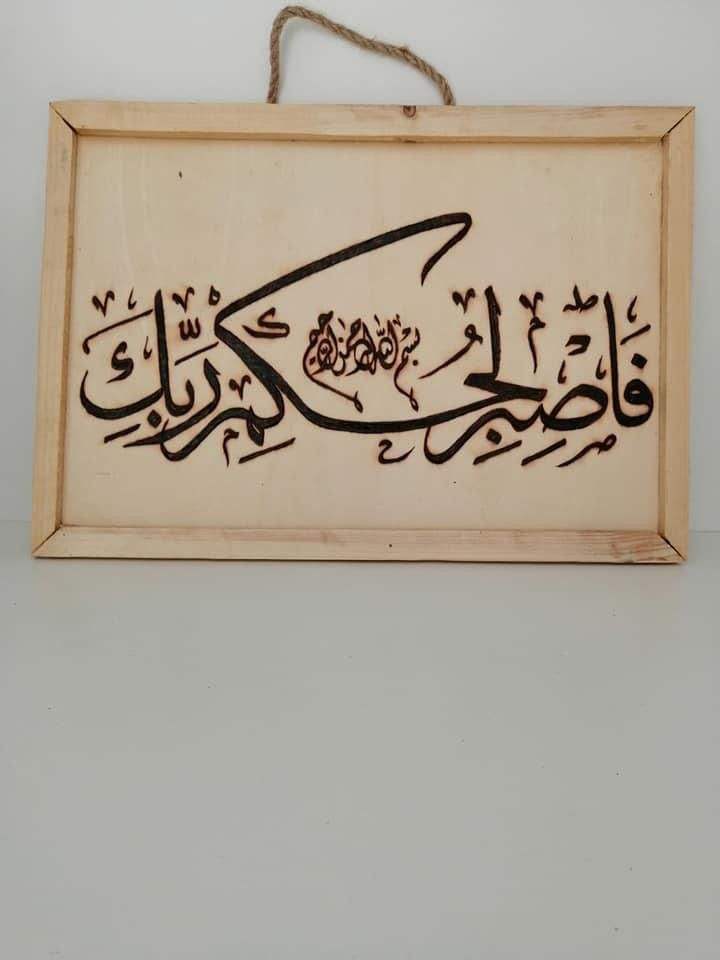 بسم الله الرحمن الرحيم
فَاصْبِرْ لِحُكْمِ رَبِّكَ